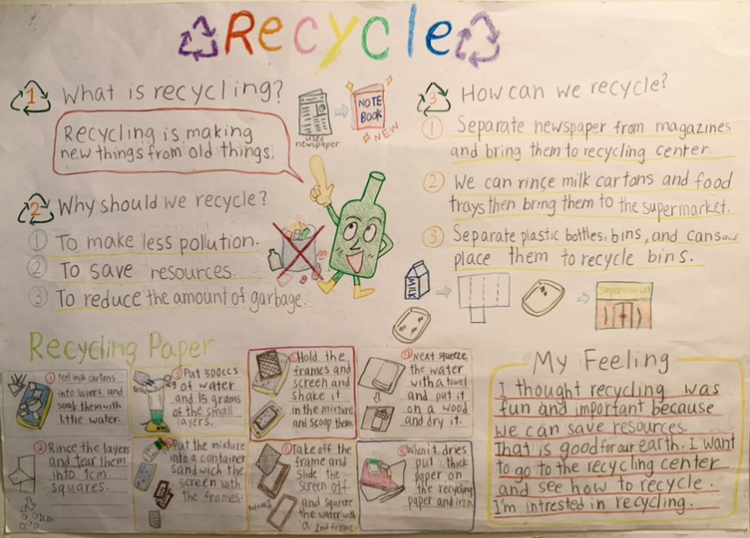 Recycle
1 What is recycling?
Recycling is making
new things from old things.
used
newspaper
NOTE
BOOK
NEW
2 Why should we recycle?
1 To make less pollution.
2 To save resources.
3 To reduce the amount of garbage.
3 How can we recycle?
1 Separate newspaper from magazines
and bring them to recycling center.
2 We can rince milk cartons and food
trays then bring them to the supermarket.
3 Separate plastic bottles, bins, and cans
place them to recycle bins.
MILK
Supermarket
Recycling Paper
1 Peel milk cartons
into layers and
soak them with
little water.
2 Rince the layers
and tear them
into 1cm
squares.
1cm
3 Put 500ccs
of water
and 15 grams
of the small
layers.
4 Put the mixture
into a container
Sandwich the
screen with
the frames.
5 Hold the
frames and
screen and
shake it
in the mixture
and scoop them
6 Take off the
frame and
slide the
screen off
and squeeze
the water with
a 2nd frame
7 Next squeeze
the water
with a towel
and put it
on a wood
and dry it.
8 When it dries
put thick
paper on
the recycling
paper and iron
My Feeling
I thought recycling was
fun and important because
we can save resources.
That is good for our earth. I want
to go to the recycling center
and see how to recycle.
I'm intrested in recycling.